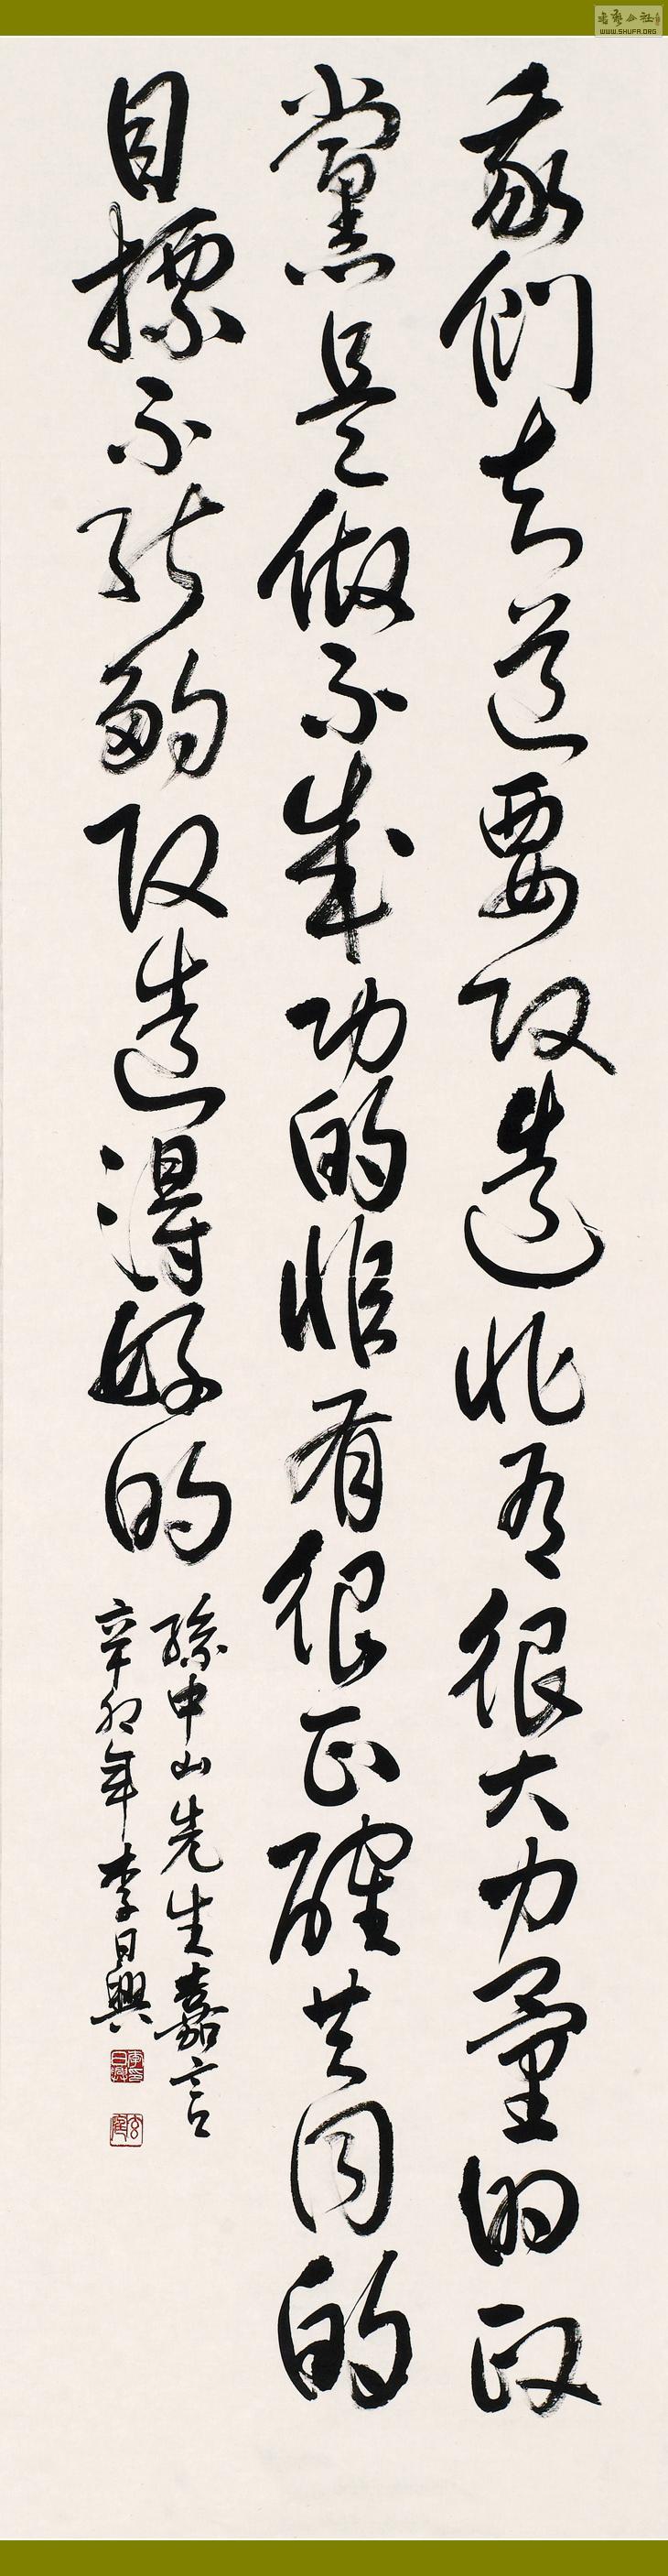 我們知道要改造非有很大力量的政
黨是做不成功的非有很正確共同的
目標不能夠改造得好的
孫中山先生嘉言
辛卯年李日興
WWW.SHUFA.ORG